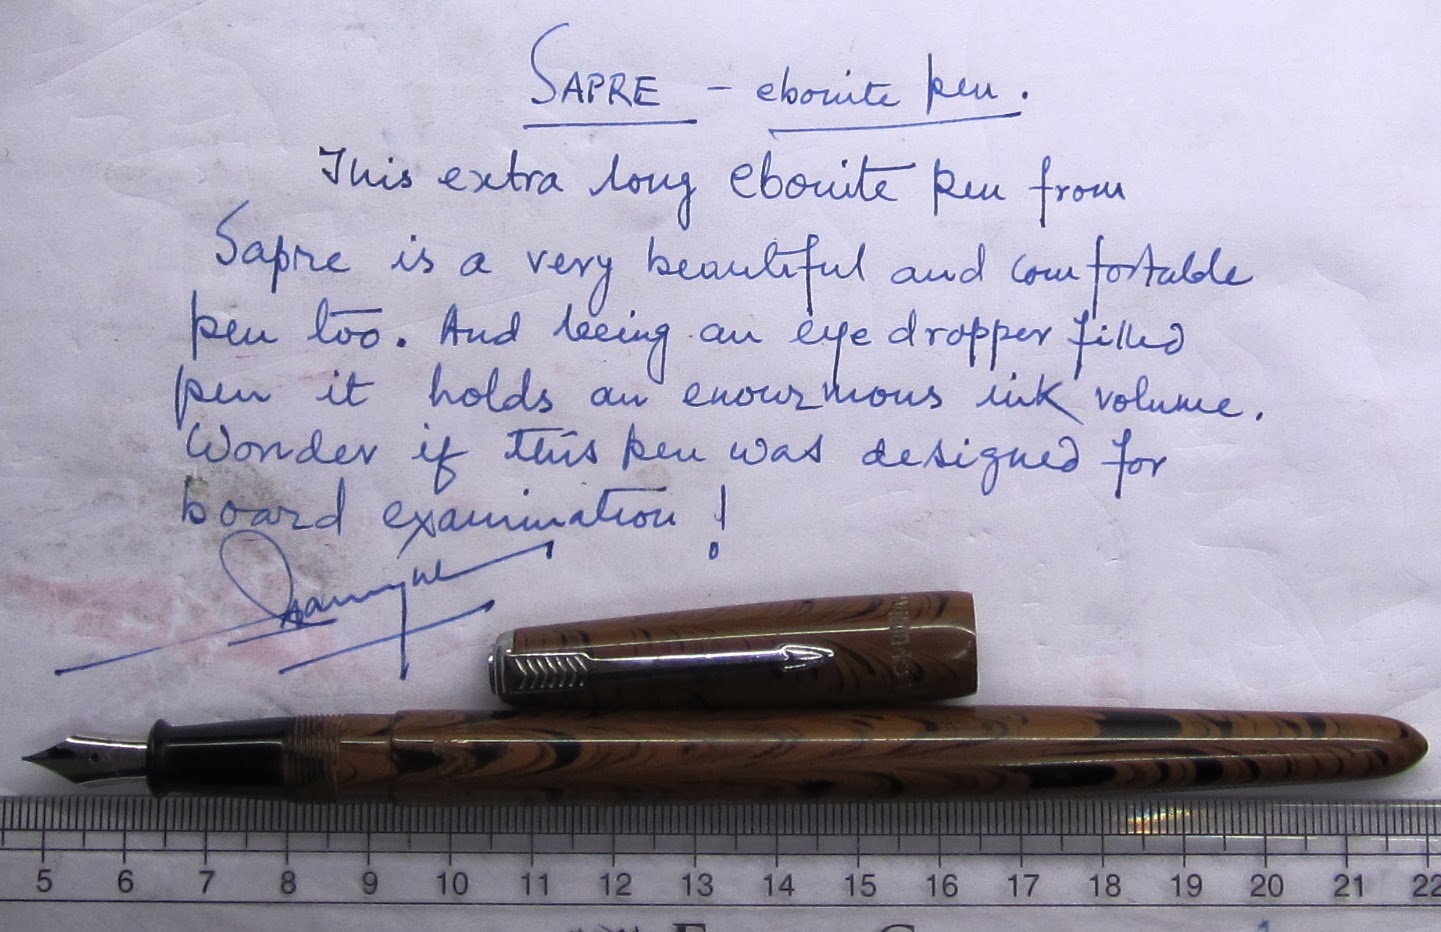 SAPRE - ebonite pen.
This extra long ebonite pen from
Sapre is a very beautiful and comfortable
pen too. And being an eye dropper filled
pen it holds an enourmous ink volume.
Wonder if this pen was designed for
board examination!
5 6 7 8 9 10 11 12 13 14 15 16 17 18 19 20 21 22